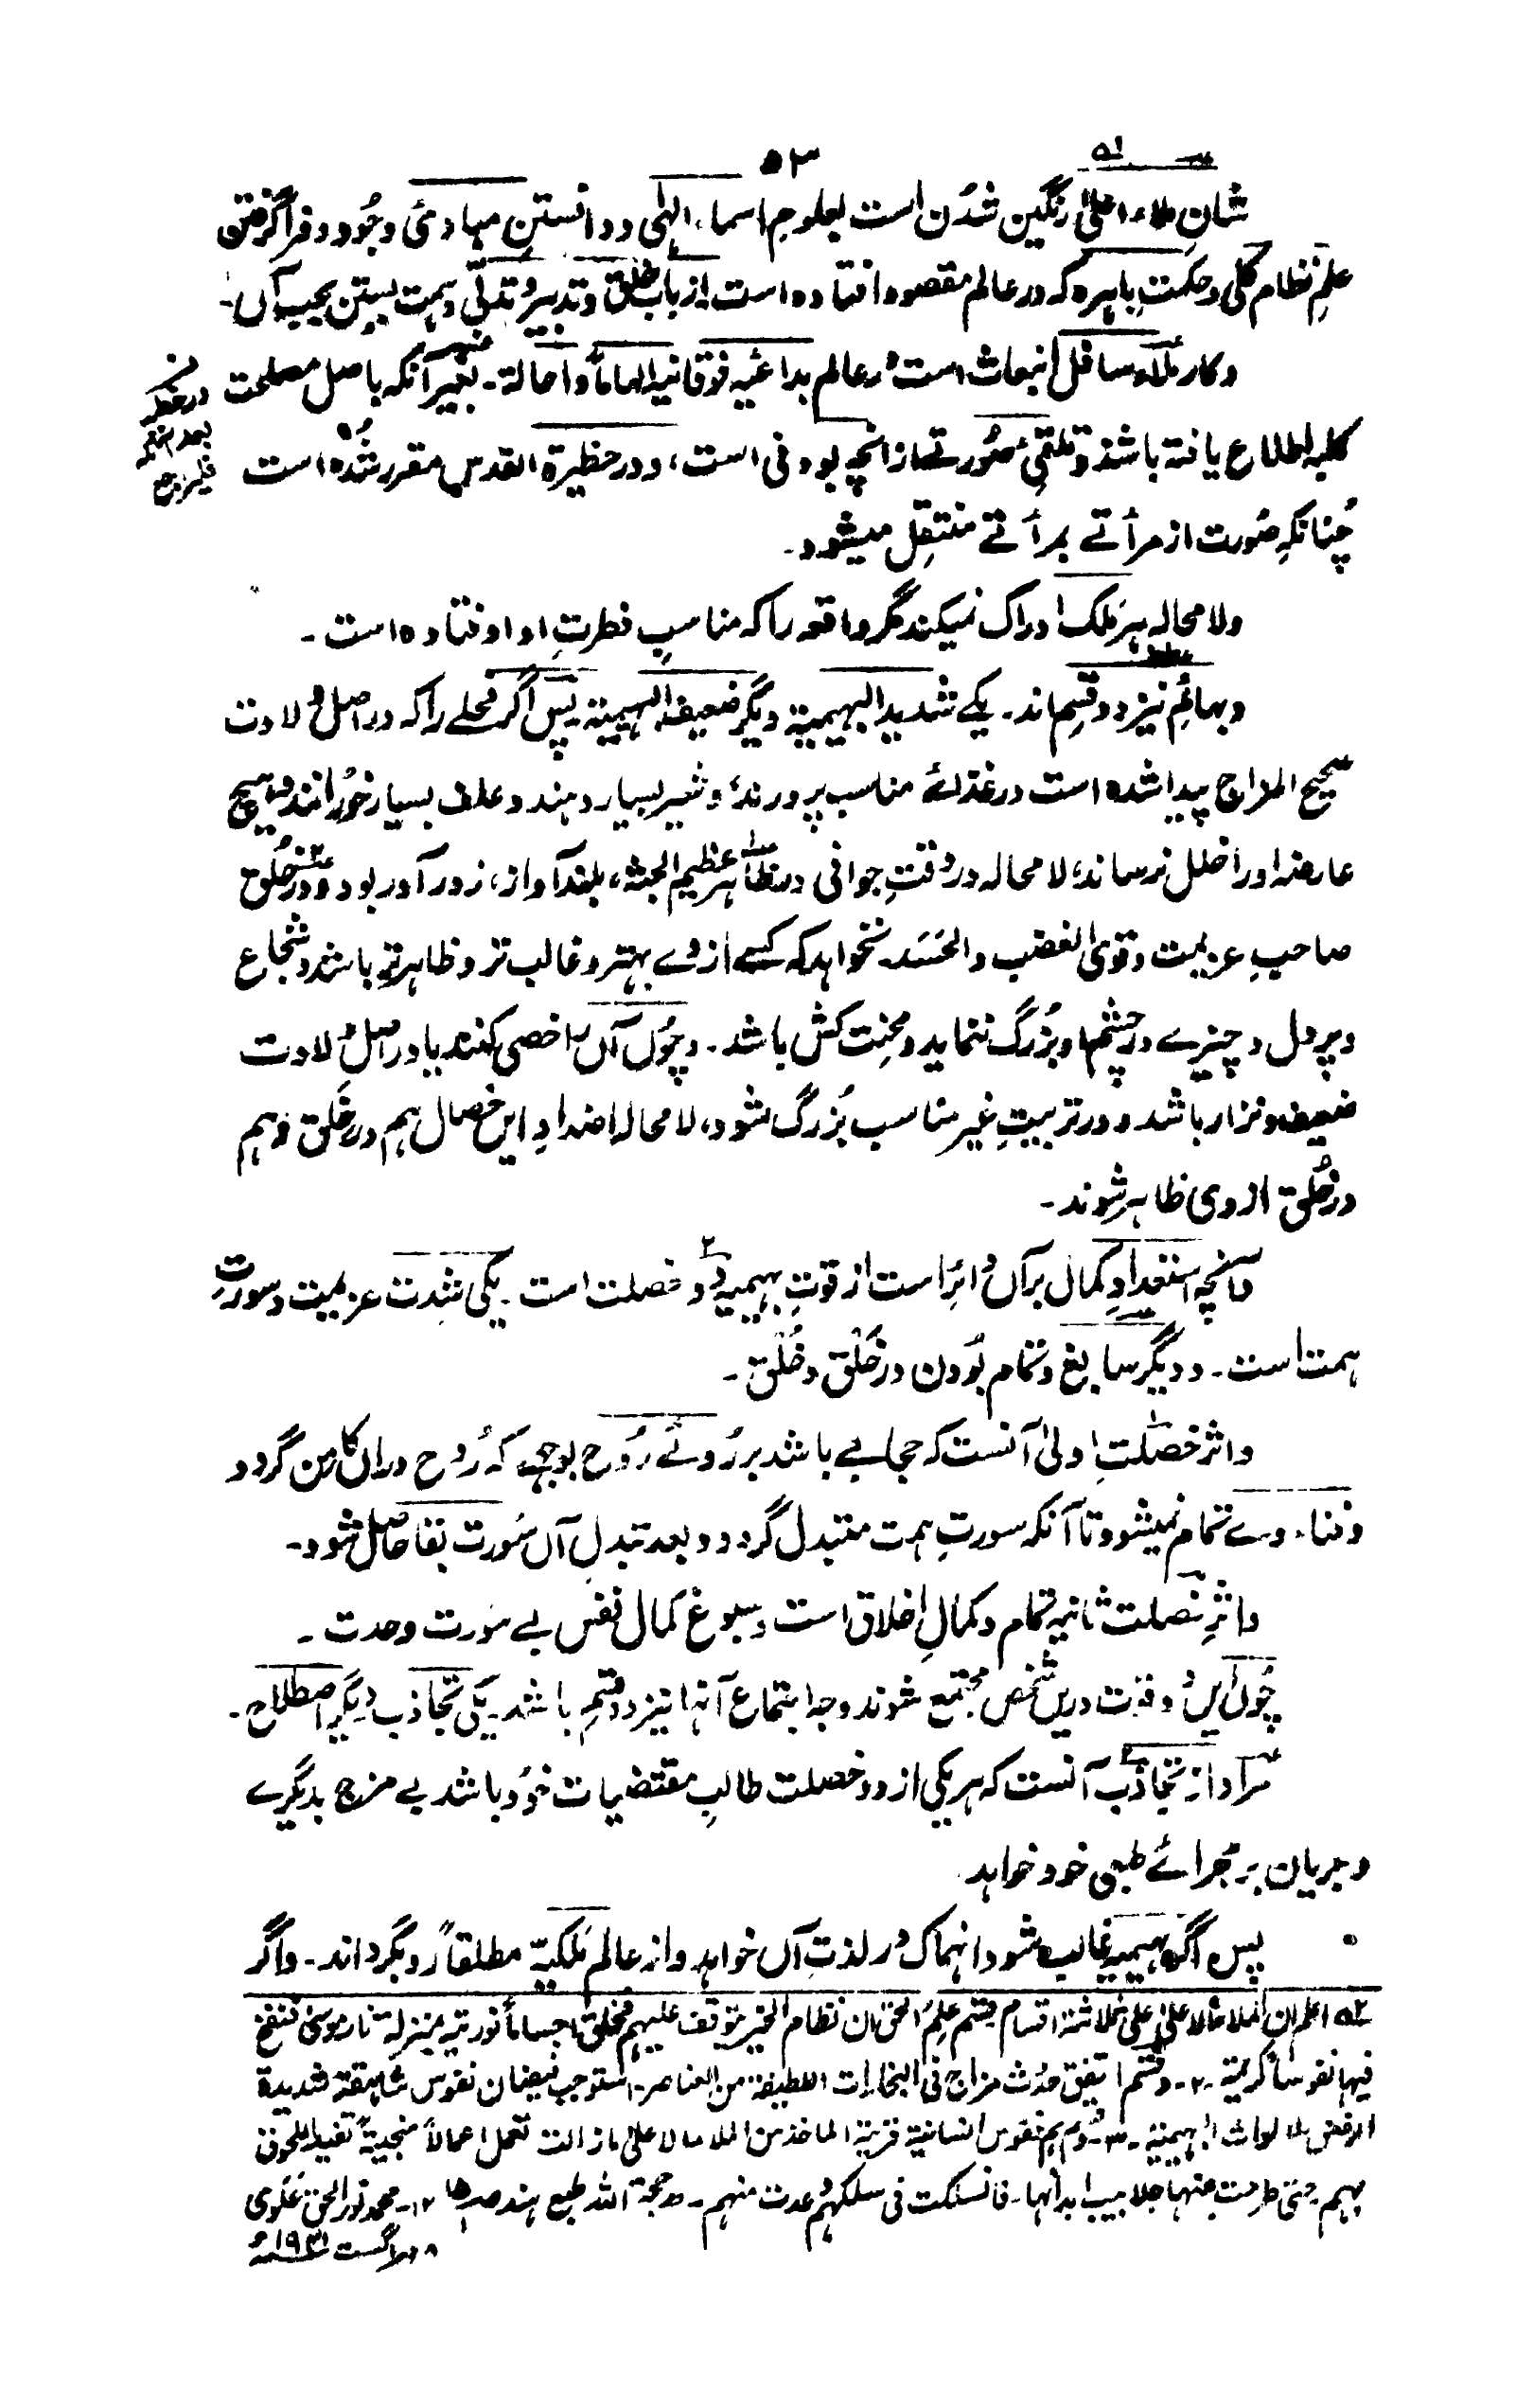 ۵۳
شانِ ملاء اعلیٰ رنگین شدن است بعلومِ اسماء الٰہی و دانستنِ مبادیٔ وجُود و فرا گرفتن
علمِ نظام کلی و حکمتِ باہرہ کہ در عالم مقصود افتادہ است از باب خلق و تدبیر و تدلّی و ہمت بستن بحیب آں۔
و کار ملاء سافل انبعاث است در عالم بداعیہ فوقانیہ الہاماً و احالۃ۔ بغیر آنکہ باصل مصلحت
کلیہ اطلاع یافتہ باشد و تلقیٔ صُورتے از انچہ بودنی است، و در حظیرۃ القدس مقرر شدہ است
چُنانکہ صُورت از مرأتے بمرأتے منتقِل میشود۔
ولا محالہ ہر ملک ادراک نمیکند مگر واقعہ را کہ مناسبِ فطرتِ او اوفتادہ است۔
و بہائم نیز دو قسم اند۔ یکے شدید البہیمیۃ دیگر ضعیف البہیمیۃ۔ پس اگر فحلے را کہ در اصل ولادت
صحیح المزاج پیدا شدہ است در غذائے مناسب پرورند، و شیر بسیار دہند و علف بسیار خورانند و ہیچ
عارضہ اورا خلل نرساند، لا محالہ در وقتِ جوانی در ظاہر عظیم الجثہ، بلند آواز، زور آور بود و در خُلق
صاحبِ عزیمت و قوی الغضب والحَسَد نخواہد کہ کسے از وے بہتر و غالب تر و ظاہر تر باشد و شجاع
و پر دل و چیزے در چشم او بزرگ ننماید و محنت کش باشد۔ و چوں آں را خصی کنند یا در اصل ولادت
ضعیف و نزار باشد و در تربیتِ غیر مناسب بُزرگ شود، لا محالہ اضدادِ ایں خصال ہم در خَلق و ہم
در خُلق ازوی ظاہر شوند۔
و آنچہ استعدادِ کمال برآں دائر است از قوتِ بہیمیہ دو خصلت است۔ یکی شدت عزیمت و سورتِ
ہمت است۔ و دیگر سابغ و تمام بودن در خَلق و خُلق۔
و اثر خصلتِ اولیٰ آنست کہ حجابے باشد بر رُوئے رُوح بوجہی کہ رُوح دراں کامِن گردد
و فناء وے تمام نمیشود تا آنکہ سورتِ ہمت متبدل گردد و بعد تبدلِ آں سُورت بقا حاصل شود۔
و اثرِ خصلت ثانیہ تمام و کمالِ اخلاق است و سبوغ کمال نفس بے سورت وحدت۔
چُوں ایں دو قوت دریں شخص مجتمع شوند وجہ اجتماع آنہا نیز دو قسم باشد۔ یکی تجاذب دیگر اصطلاح۔
مراد از تجاذب آنست کہ ہر یکی از دو خصلت طالبِ مقتضیات خود باشد بے مزج بدیگرے
و جریان بر مجرائے طبعی خود خواہد
پس اگر بہیمیہ غالب شود انہماک در لذتِ آں خواہد و از عالم مَلکیّہ مطلقاً رو بگرداند۔ و اگر
اعلم ان الملاء الاعلیٰ علی ثلاثۃ اقسام قسم علِمَ الحق ان نظام الخیر یتوقف علیہم فخلق اجساماً نوریۃ بمنزلۃ نار موسیٰ فنفخ
فیہا نفوساً کریمۃ۔ ۲۔ وقسم اتفق حدُث مزاج فی البخارات اللطیفۃ من العناصر۔ استوجب فیضان نفوس شاہقۃ شدیدۃ
الرفض للالواث البہیمیۃ۔ ۳۔ وقسم ہم نفوس انسانیۃ قریبۃ الماخذ من الملاء الاعلی ما زالت تعمل اعمالاً منجیۃً تفید اللحوق
بہم حتی طرحت عنہا جلابیب ابدانہا۔ فانسلکت فی سلکہم وعدت منہم۔ حجۃ اللہ طبع ہند ۱۲۔ محمد نور الحق علوی
اگست ۱۹۳۱ء